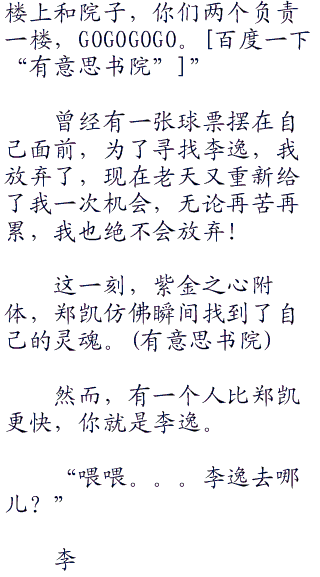 楼上和院子，你们两个负责
一楼，GOGOGOGO。[百度一下
“有意思书院”]”
曾经有一张球票摆在自
己面前，为了寻找李逸，我
放弃了，现在老天又重新给
了我一次机会，无论再苦再
累，我也绝不会放弃！
这一刻，紫金之心附
体，郑凯仿佛瞬间找到了自
己的灵魂。(有意思书院)
然而，有一个人比郑凯
更快，你就是李逸。
“喂喂。。。李逸去哪
儿？”
李